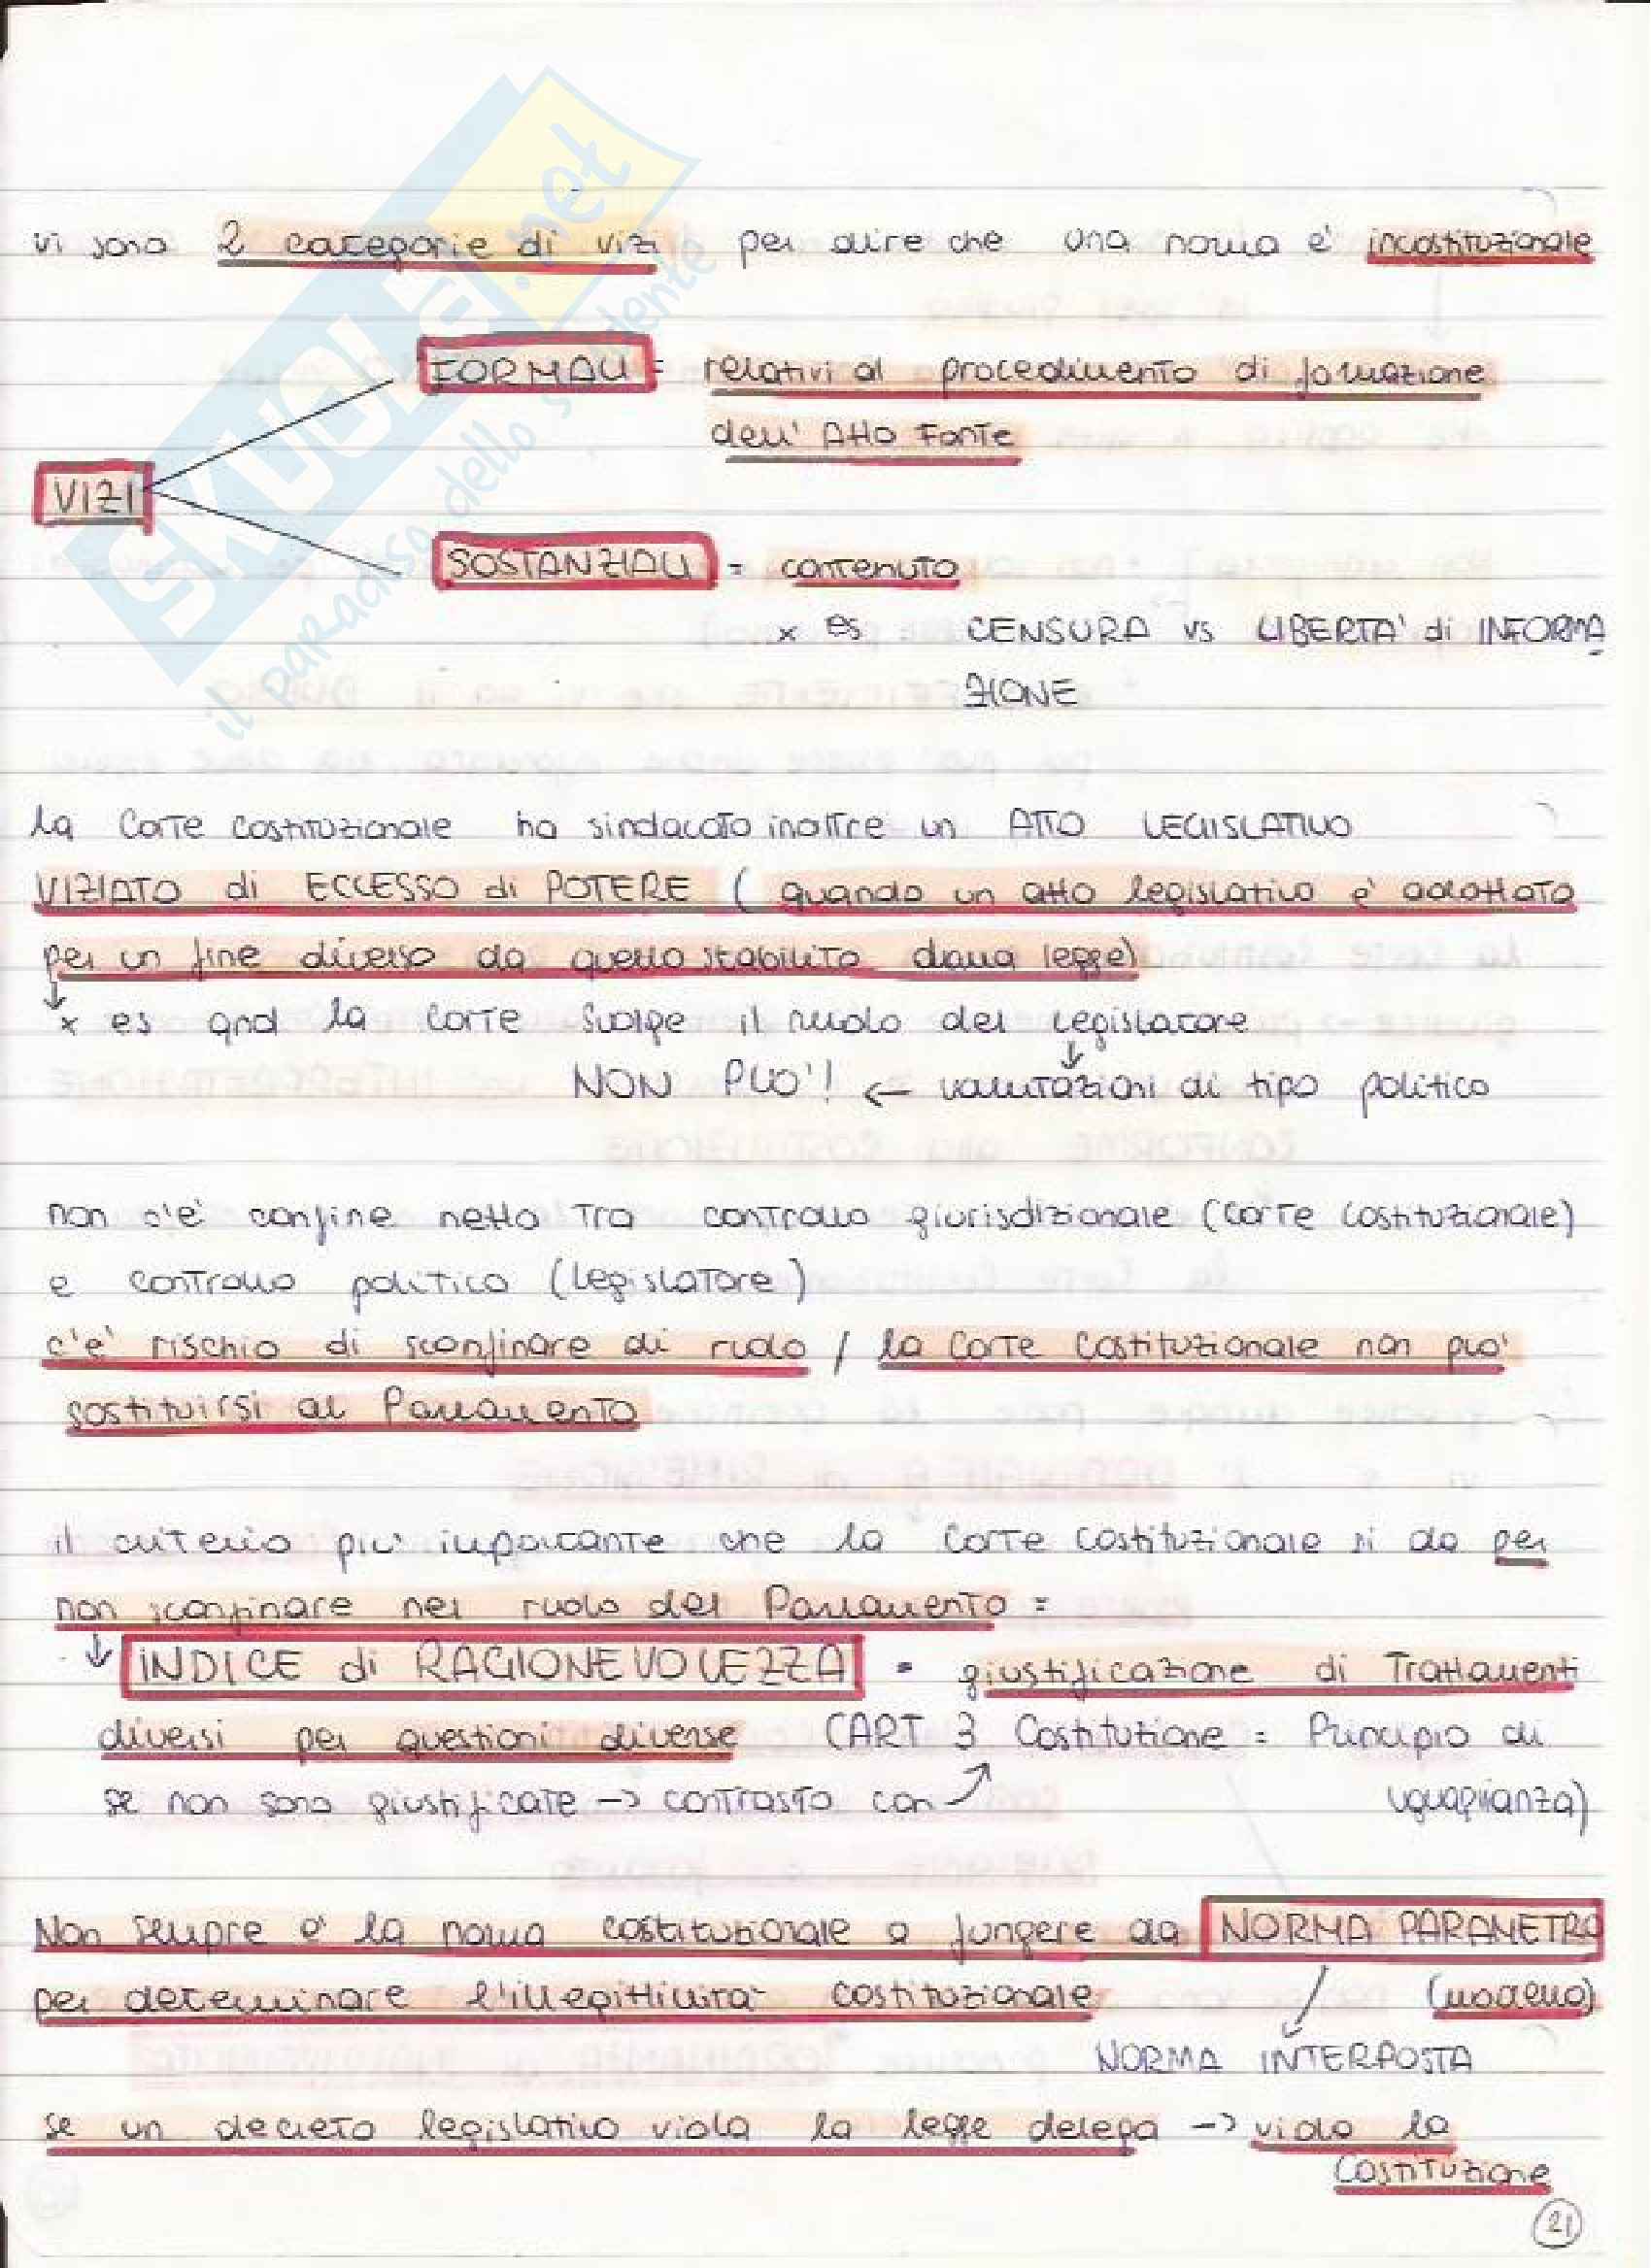 vi sono 2 categorie di vizi per dire che una norma e' incostituzionale
FORMALI = relativi al procedimento di formazione
dell' Atto Fonte
VIZI
SOSTANZIALI = contenuto
x es CENSURA vs LIBERTA' di INFORMA
ZIONE
la Corte costituzionale ha sindacato inoltre un ATTO LEGISLATIVO
VIZIATO di ECCESSO di POTERE ( quando un atto legislativo e' adottato
per un fine diverso da quello stabilito dalla legge)
↓
x es qnd la Corte svolge il ruolo del legislatore
↓
NON PUO'! ← valutazioni di tipo politico
non c'e' confine netto tra controllo giurisdizionale (Corte Costituzionale)
e controllo politico (legislatore)
c'e' rischio di sconfinare di ruolo / la Corte Costituzionale non puo'
sostituirsi al Parlamento
il criterio piu' importante che la Corte Costituzionale si da per
non sconfinare nel ruolo del Parlamento =
↓ INDICE di RAGIONEVOLEZZA = giustificazione di Trattamenti
diversi per questioni diverse (ART 3 Costituzione = Principio di
se non sono giustificate → contrasto con ↗ uguaglianza)
Non sempre e' la norma costituzionale a fungere da NORMA PARAMETRO
per determinare l'illegittimita' costituzionale (modello)
NORMA INTERPOSTA
se un decreto legislativo viola la legge delega → viola la
Costituzione
21
SKUOLA.net
il paradiso dello studente